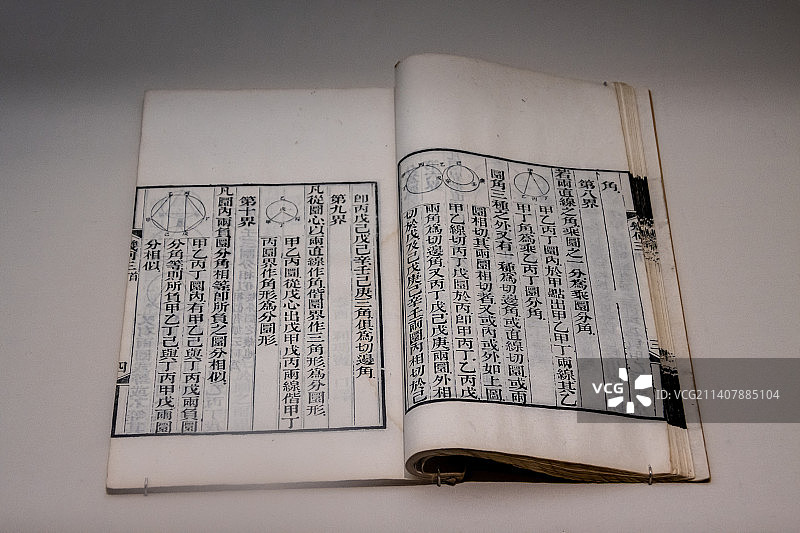 角
第八界
若兩直線之角乘圜之一分爲乘圜分角
甲乙丙丁圜內於甲點出甲乙甲丁兩線其乙
甲丁角爲乘乙丙丁圜分角
圜角三種之外又有一種爲切邊角或直線切圜或兩
圜相切其兩圜相切者又或內或外如上圖
甲乙線切丙丁戊圜於丙即甲丙丁乙丙戊
兩角爲切邊角又丙丁戊己戊庚兩圜外相
切於戊及己戊庚己辛壬兩圜內相切於己
即丙戊己戊己辛壬己庚三角俱爲切邊角
第九界
凡從圜心以兩直線作角偕圜界作三角形爲分圜形
甲乙丙圜從戊心出戊甲戊丙兩線偕甲丁
丙圜界作角形爲分圜形
第十界
凡圜內兩負圜分角相等即所負之圜分相似
甲乙丙丁圜內有甲乙己與丁丙戊兩負圜
分角等則所負甲乙丁己與丁丙甲戊兩圜
分相似
幾何三首
四
VCG
ID: VCG211407885104